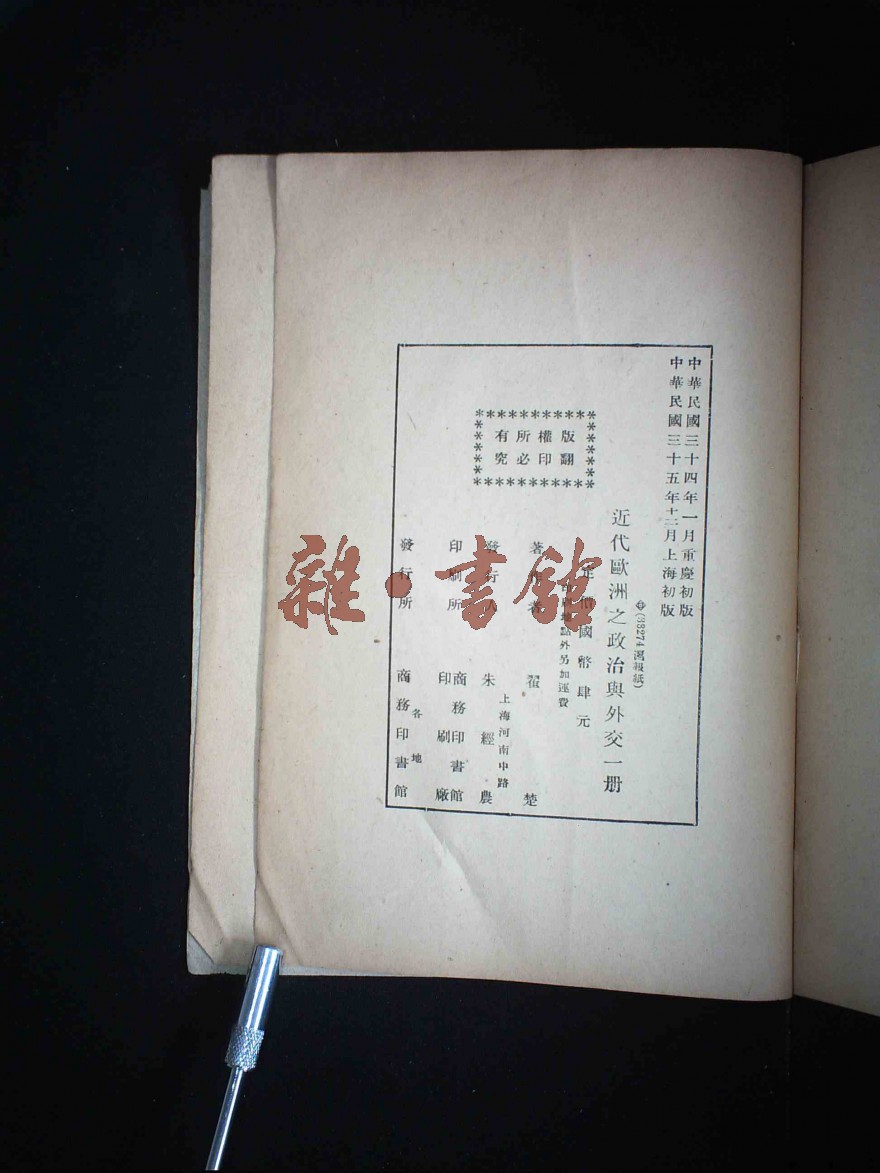 中華民國三十四年一月重慶初版
中華民國三十五年十二月上海初版
(38274滬報紙)
近代歐洲之政治與外交一册
定價國幣肆元
印刷地點外另加運費
版權所有
翻印必究
著作者 翟楚
發行人 朱經農
上海河南中路
印刷所 商務印書館印刷廠
發行所 商務印書館
各地
雜·書館